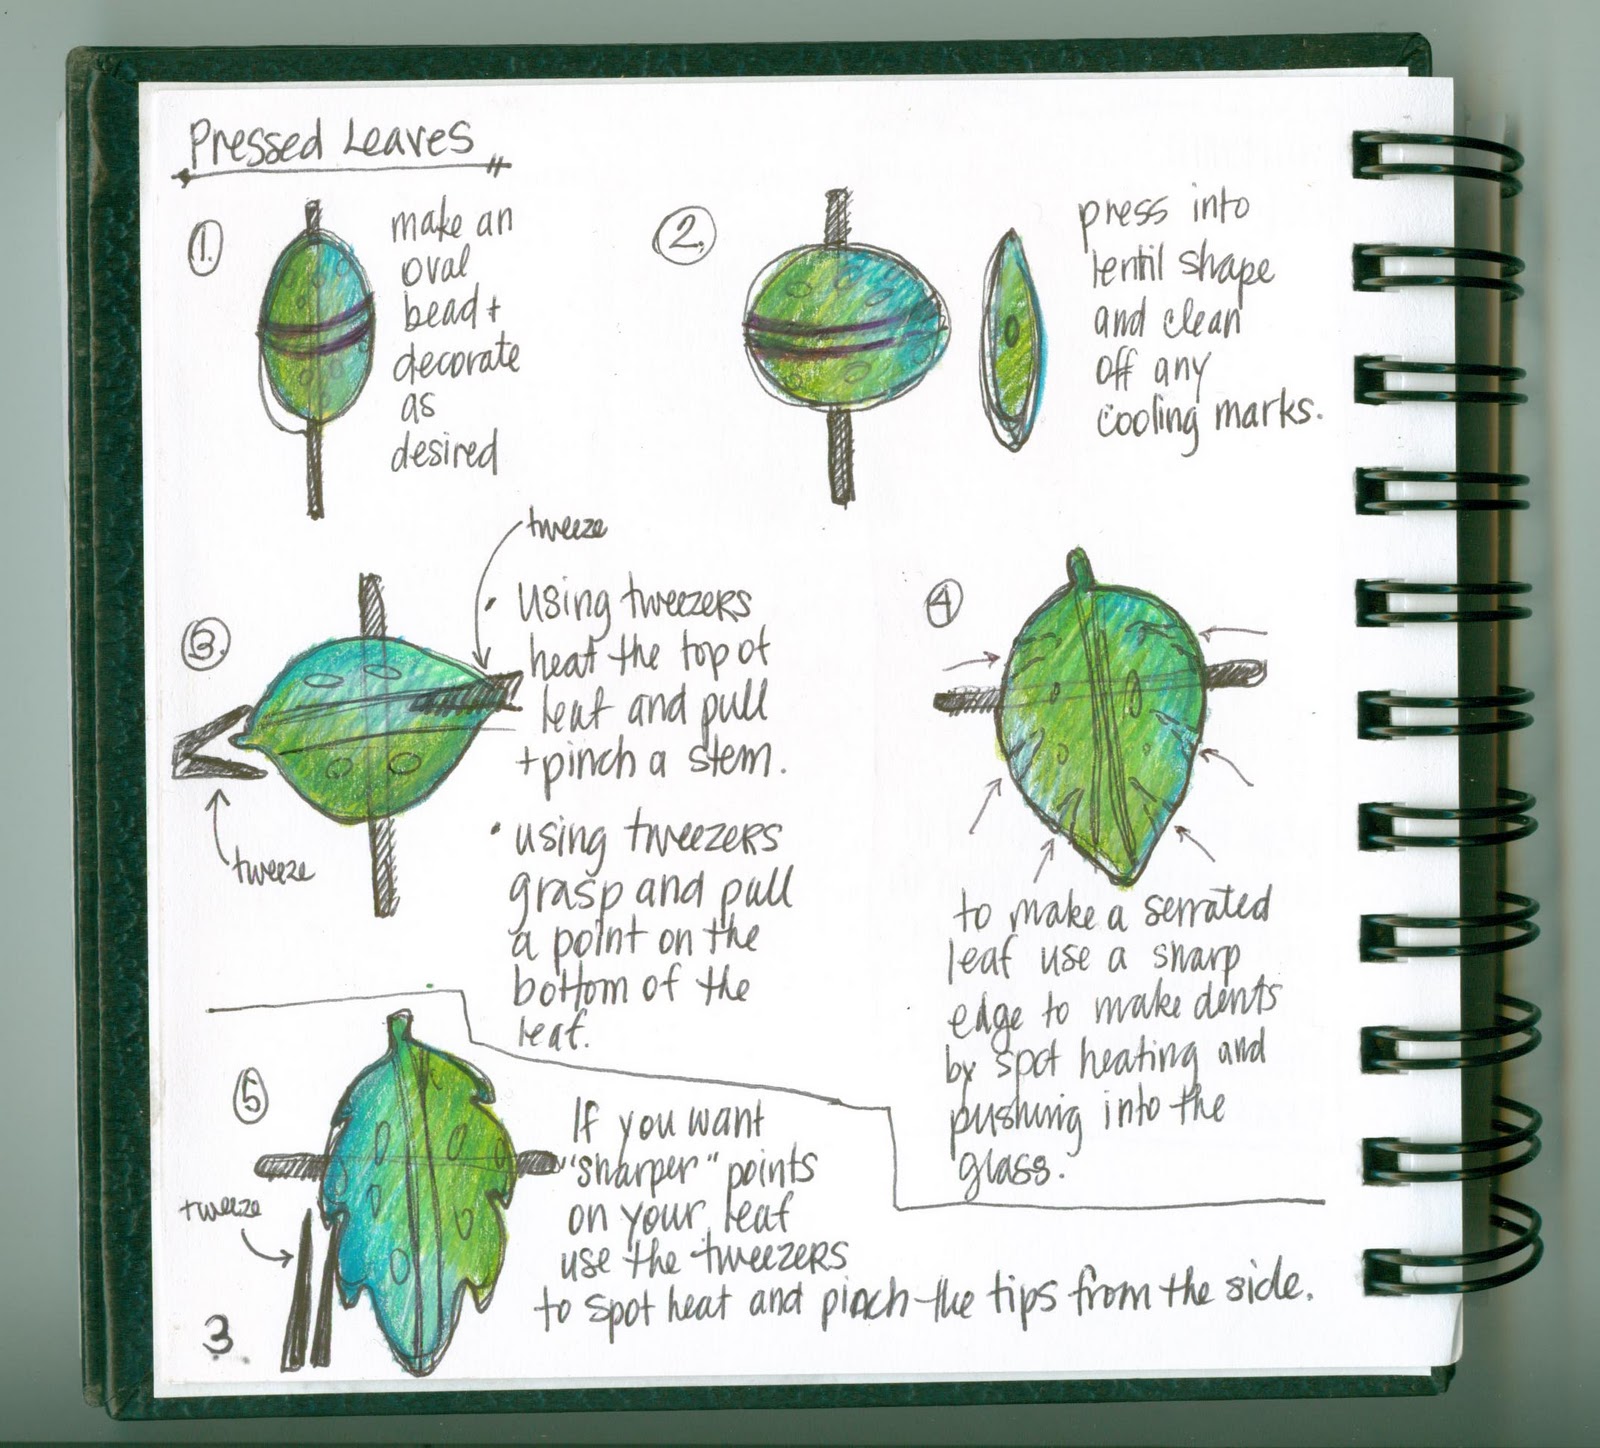 Pressed Leaves
1.
make an
oval
bead +
decorate
as
desired
2.
press into
lentil shape
and clean
off any
cooling marks.
3.
tweeze
• Using tweezers
heat the top of
leaf and pull
+ pinch a stem.
• using tweezers
grasp and pull
a point on the
bottom of the
leaf.
tweeze
4
to make a serrated
leaf use a sharp
edge to make dents
by spot heating and
pushing into the
glass.
5
If you want
"sharper" points
on your leaf
use the tweezers
to spot heat and pinch the tips from the side.
tweeze
3